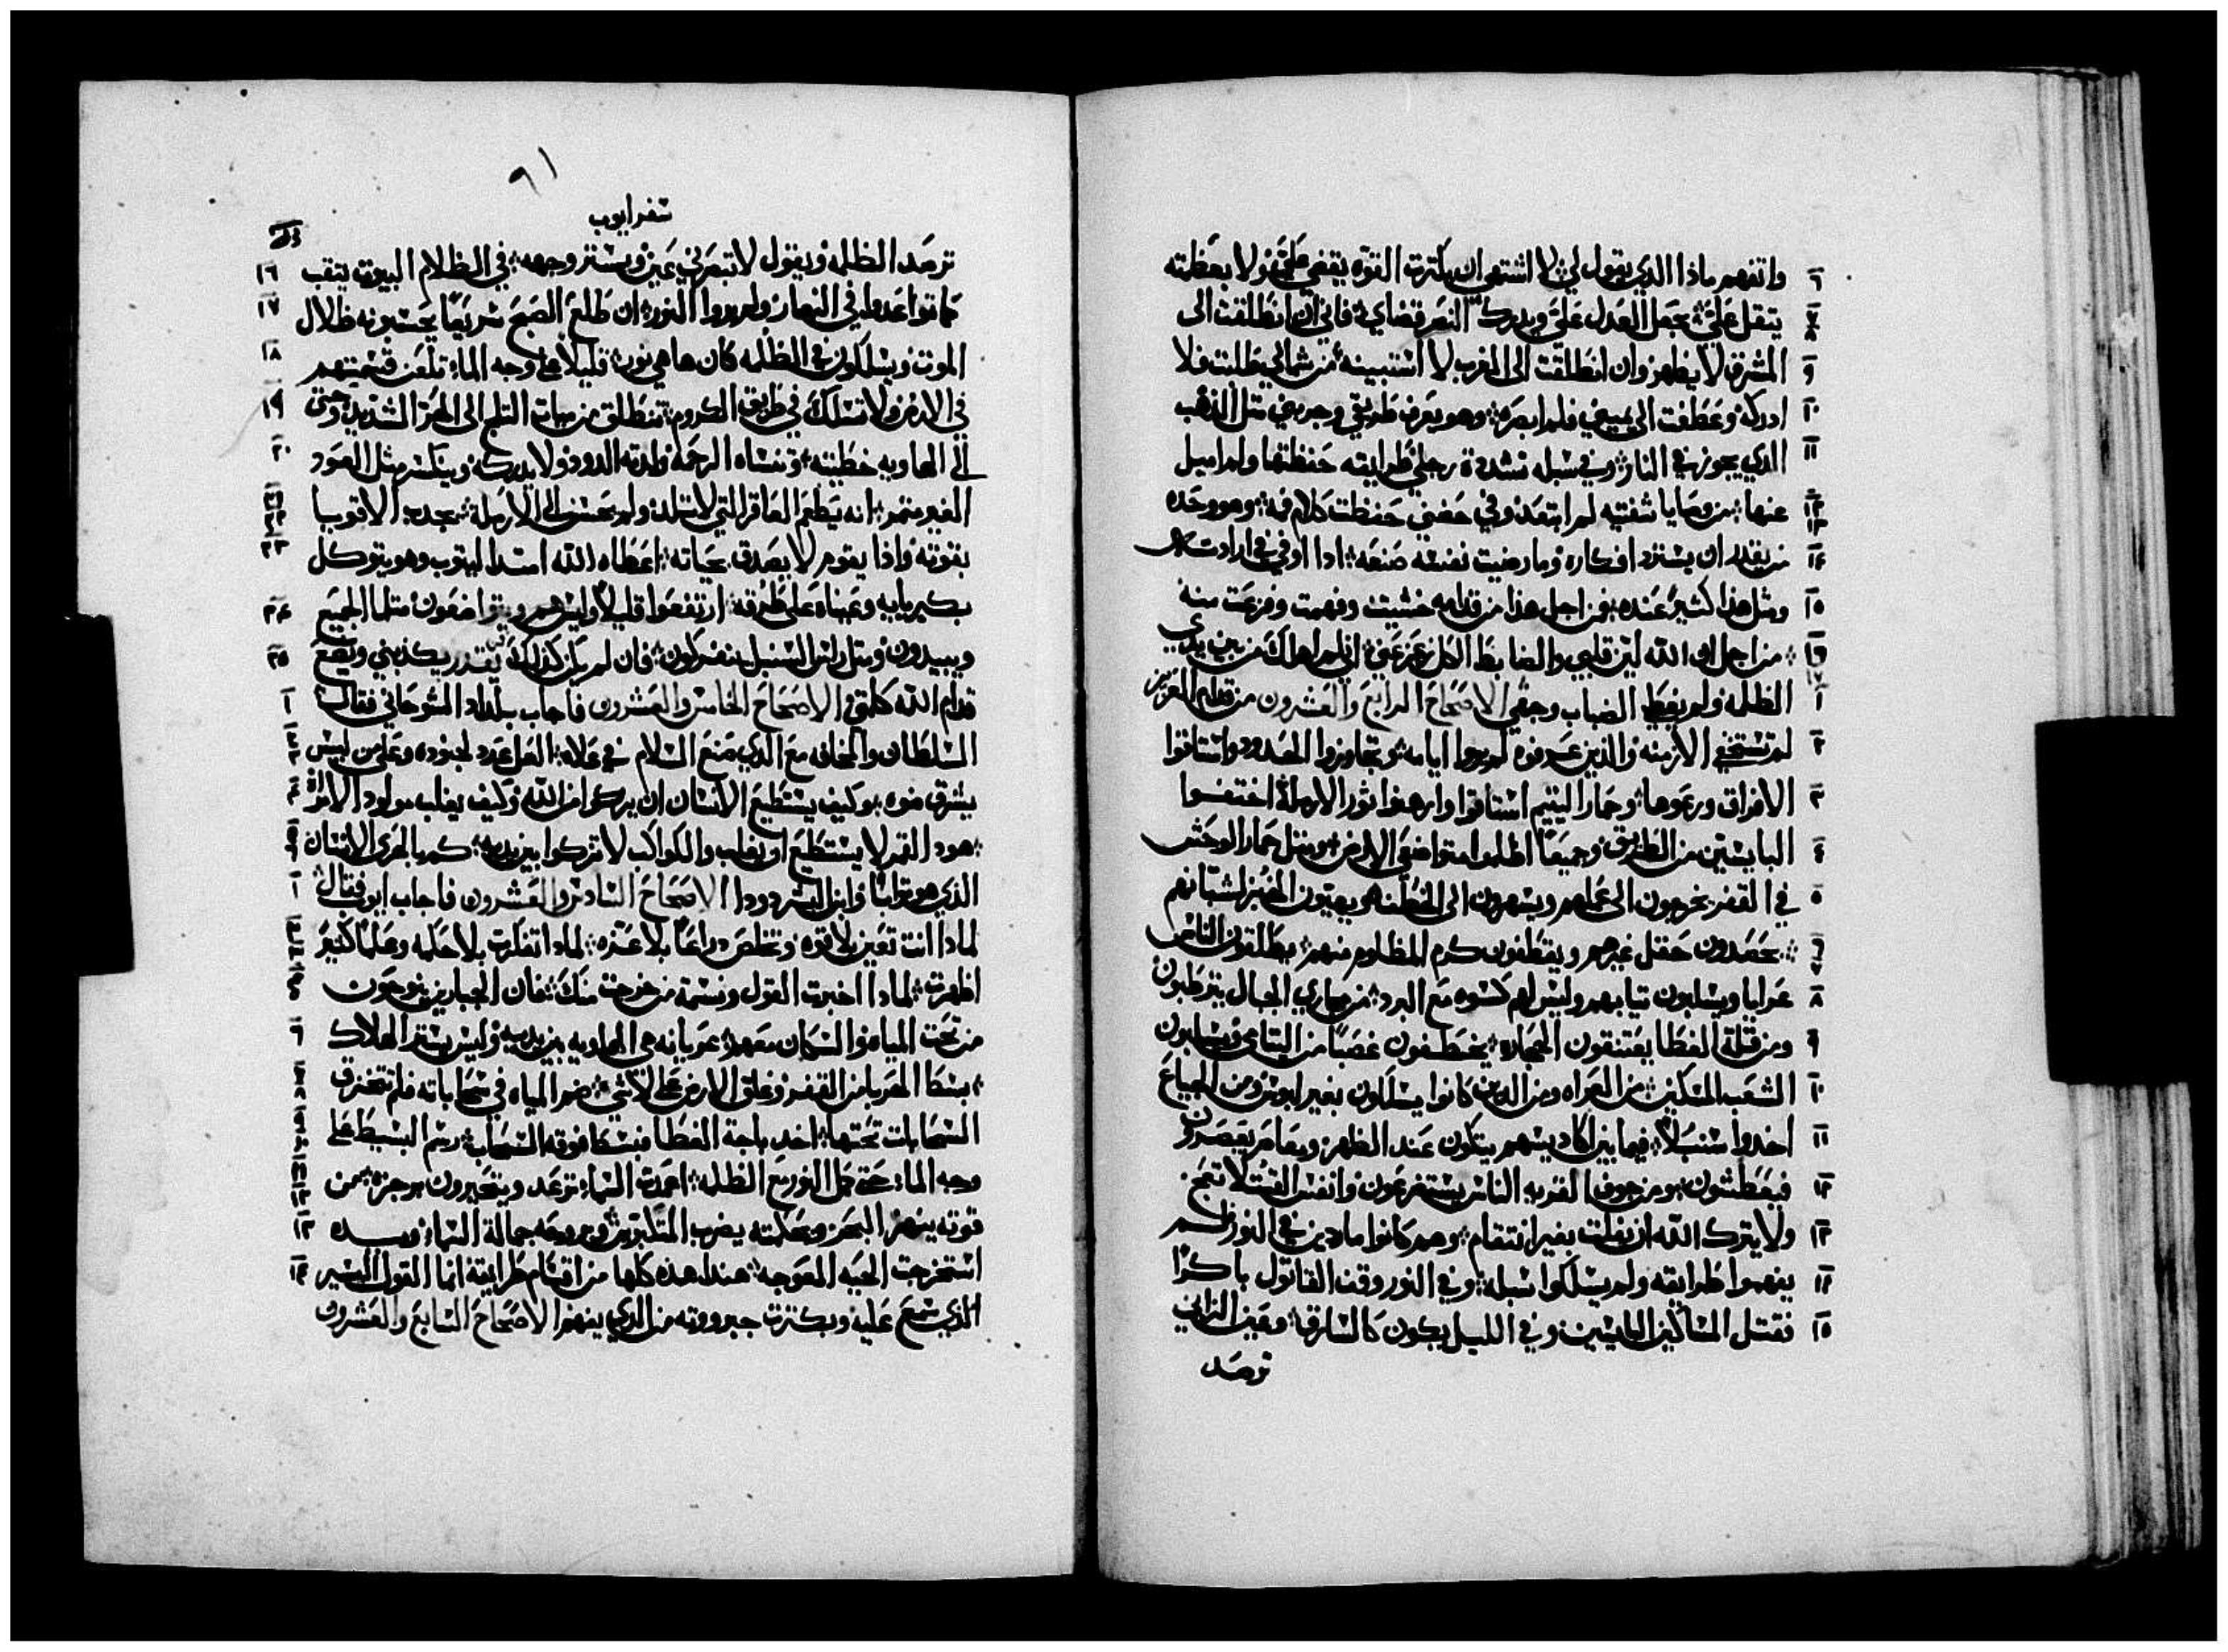 واتفهم ماذا الذي يقول لي لا اشتهي ان بكثرت القوه يقضي علي ولا بعظمته ٦
يتقل علي يجعل العدل علي ويدرك النصر قضاي فاني ان انطلقت الى ٧ ٨
المشرق لا يظهر وان انطلقت الى المغرب لا استبينه من شمالي طلبت فلا ٩
ادركه وعطفت الى يميني فلم ابصره وهو يعرف طريقي وجربني مثل الذهب ١٠
الذي يجوز في النار وفي سبله تشددة رجلي طرايقه حفظتها ولم اميل ١١
عنها من وصايا شفتيه لم ابتعد وفي حضني حفظت كلام فيه وهو وحده ١٢ ١٣
من يقدر ان يسترد افكاره وما رضيت نفسه صنعه اذا اوفي في ارادته ١٤
ومثل هذا كثير عنده فمن اجل هذا من قدامه خشيت وفهمت وفزعت منه ١٥
من اجل ان الله لين قلبي والضابط الكل زعزعني اني لم اهلك من بين يدي ١٦
الظلمه ولم يغطي الضباب وجهي الاصحاح الرابع والعشرون من قدام العزيز ١٧ ١
لم تستخفي الازمنه والذين عرفوه لم يروا ايامه وتجاوزوا الحدود واستاقوا ٢
الافراق ورعوها وحمار اليتيم استاقوا وارهنوا ثور الارملة اغتصبوا ٣
البايسين من الطريق وجميعا اظلموا متواضعي الارض ومثل حمار الوحش ٤
في القفر يخرجون الى عملهم ويسهرون الى الخطف ويهيون الخبز لشبانهم ٥
يحصدون حقل غيرهم ويقطفون كرم المظلوم منهم يطلقون الناس ٦ ٧
عرايا ويسلبون تيابهم وليس لهم كسوه مع البرد من مجاري الجبال يترطبون ٨
ومن قلة الغطا يعتنقون الحجاره يخطفون غصبا من اليتامى ويسلبون ٩
الشعب المسكين من العراه ومن الدين كانوا يسلكون بغير لبوس ومن الجياع ١٠
اخدوا سنبلا فيما بين اكاديسهم يتكون عند الظهر ومعاصر يعصرون ١١
فيعطشون ومن جوف القريه الناس يستفرعون وانفس القتلا تعج ١٢
ولا يترك الله ان يفلت بغير انتقام وهم كانوا ماردين في النور ولم ١٣
يفهموا طرايقه ولم يسلكوا سبله وفي النور وقف القاتول باكرا ١٤
فقتل المساكين البايسين وفي الليل يكون كالسارق وعين الزاني ١٥
ترصد
٩١
سفر ايوب
ترصد الظلمه ويقول لا تبصرني عين ويستر وجهه في الظلام البيوت يتقب ١٦
كما تواعدوا في النهار ولم يروا النور ان طلع الصبح سريعا يحسبونه ظلال ١٧
الموت ويسلكون في الظلمه كان ها هي نور قليلا على وجه الماء تلعن قسمتهم ١٨
في الارض ولا تسلك في طريق الكروم تنطلق من مياه التلج الى الحر الشديد وحتى ١٩
الى الهاويه خطيته وتنساه الرحمه ولدته الدود ولا يدركه وينكسر مثل العود ٢٠
الغير متمر انه يطعم العاقر التي لا تلد ولم يحسن الى الارمله يجدب الاقويا ٢١ ٢٢
بقوته واذا يقوم لا يصدق بحياته اعطاه الله استدا ليتوب وهو يتوكل ٢٣
بكبريايه وعيناه على طرقه ارتفعوا قليلا وليس هم ويتواضعون مثلما الجميع ٢٤
ويبيدون ومتل راس السنبل ينفركون فان لم يكن كذلك من يقدر يكذبني ويضع ٢٥
قدام الله كلامي الاصحاح الخامس والعشرون فاجاب بلداد الشوحاني فقال ١
السلطان والمخافه مع الذي صنع السلام في علاه العل عدد لجنوده وعلى من ليس ٢ ٣
يشرق ضوه وكيف يستطيع الانسان ان يبرر امام الله وكيف يغلب مولود الامراة ٤
هود القمر لا يستطيع ان يغلب والكواكب لا تزكوا بين يديه كم بالحري الانسان ٥ ٦
الذي هو تراب وابن البشر دودا الاصحاح السادس والعشرون فاجاب ايوب فقال ١
لماذا انت تعين بلا قوه وتخلص دراعا بلا عزه لماذا تفكرت بلا حكمه وعلما كثيرا ٢ ٣
اظهرت لماذا اخبرت القول ونسمة من خرجت منك فان الجبارين ينوحون ٤ ٥
من تحت المياه والسكان معهم عريانه هي الهاويه بين يديه وليس يستر الهلاك ٦
يبسط الحربا من القفر وعلق الارض على لا شي صر المياه في سحاباته فلم تتخرق ٧ ٨
السحابات تحتها اخد باجة الغطا فبسط فوقه السحاب رسم البسيط على ٩ ١٠
وجه الماء حتى كمل النور مع الظلمه اعمدت السماء ترعد ويتحيرون من زجره من ١١ ١٢
قوته ينهر البحر وبحكمته يضرب المتكبرين وبروحه جمالة السماء وبيده ١٣
استخرجت الحيه المعوجه هندا هده كلها من اقسام طرايقه انما القول اليسير ١٤
الذي سمع عليه وبكترت جبروته من الذي يفهم الاصحاح السابع والعشرون